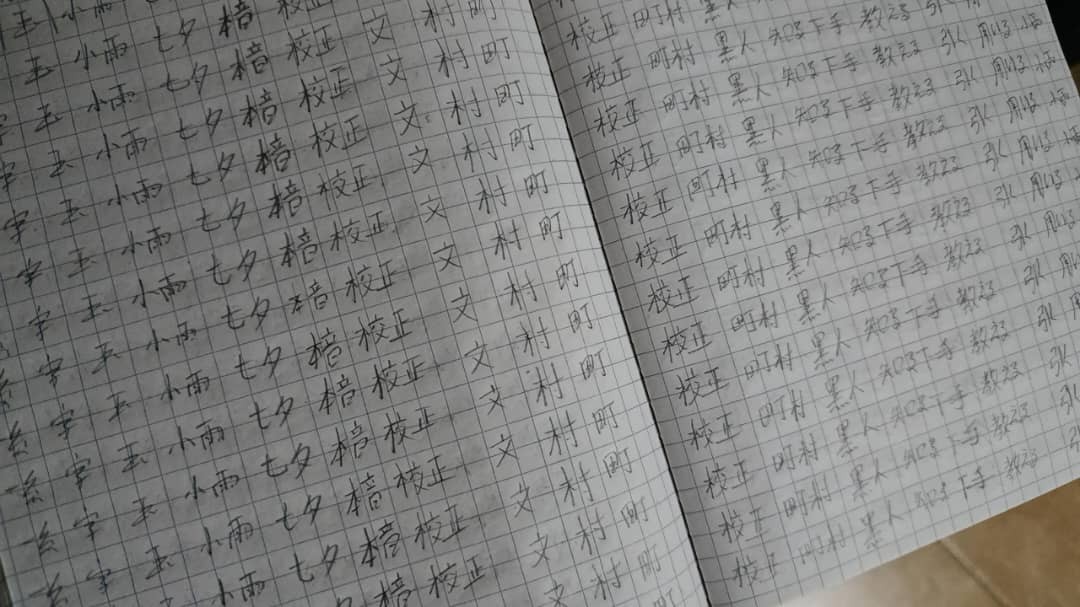 小雨
玉 小雨 七夕 本音 校正
玉 小雨 七夕 本音 校正 文 村 町
字 玉 小雨 七夕 本音 校正 文 村 町
字 玉 小雨 七夕 本音 校正 文 村 町
字 玉 小雨 七夕 本音 校正 文 村 町
字 玉 小雨 七夕 本音 校正 文 村 町
字 玉 小雨 七夕 本音 校正 文 村 町
糸 字 玉 小雨 七夕 本音 校正 文 村 町
糸 字 玉 小雨 七夕 本音 校正 文 村 町
糸 字 玉 小雨 七夕 本音 校正 文 村 町
糸 字 玉 小雨 七夕 本音 校正 文 村 町
小雨 七夕 本音 校正 文 村 町
本音 校正 文 村 町
文 村 町
校正 町村 黒人 知る 下手 教える 引
校正 町村 黒人 知る 下手 教える 引 用心
校正 町村 黒人 知る 下手 教える 引 用心
校正 町村 黒人 知る 下手 教える 引 用心
校正 町村 黒人 知る 下手 教える 引 用心
校正 町村 黒人 知る 下手 教える 引 用心
校正 町村 黒人 知る 下手 教える 引 用
校正 町村 黒人 知る 下手 教える 引
校正 町村 黒人 知る 下手 教える 引
校正 町村 黒人 知る 下手 教える 引
校正 町村 黒人 知る 下手 教える
校正 町村 黒人 知る 下手 教える
校正 町村 黒人 知る 下手 教える